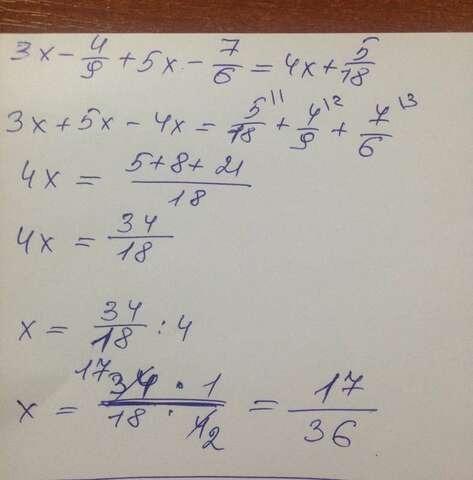 3x - 4/9 + 5x - 7/6 = 4x + 5/18
3x + 5x - 4x = 5/18 \1 + 4/9 \2 + 7/6 \3
4x = (5+8+21)/18
4x = 34/18
x = 34/18 : 4
x = (34 17 · 1)/(18 · 4 2) = 17/36